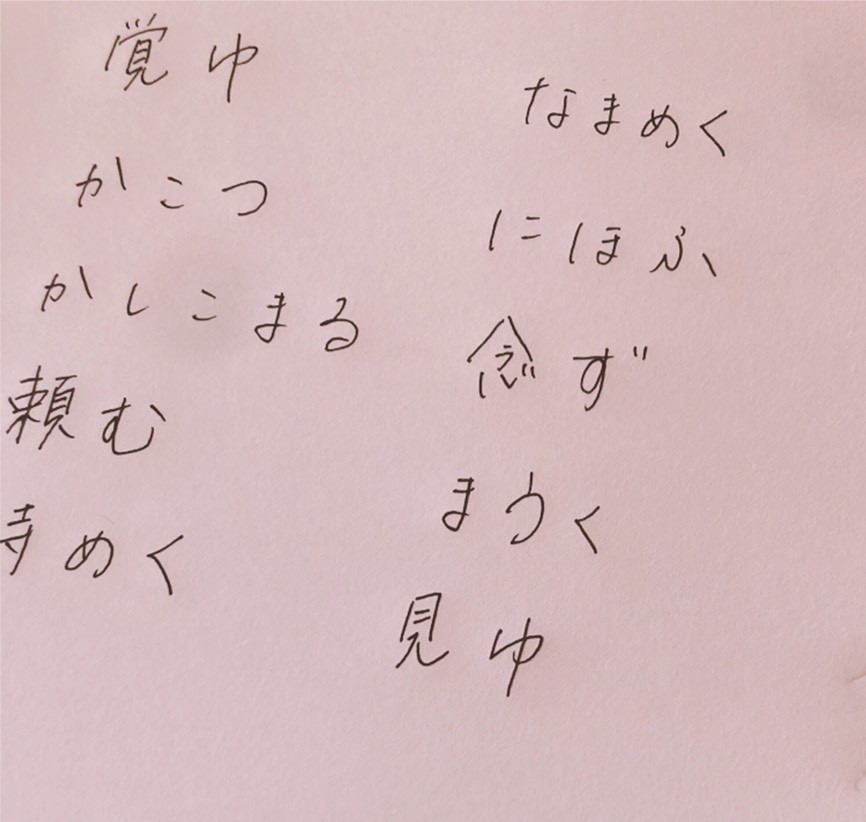 覚ゆ
かこつ
かしこまる
頼む
めく
なまめく
にほふ
念ず
まうく
見ゆ